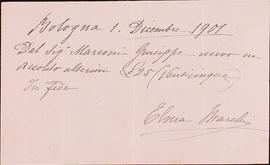 Bologna 1. Dicembre 1901
Dal Sig. Marconi Giuseppe ricevo in
acconto ulteriori £25 (Venticinque)
In fede
Elvira Marchi